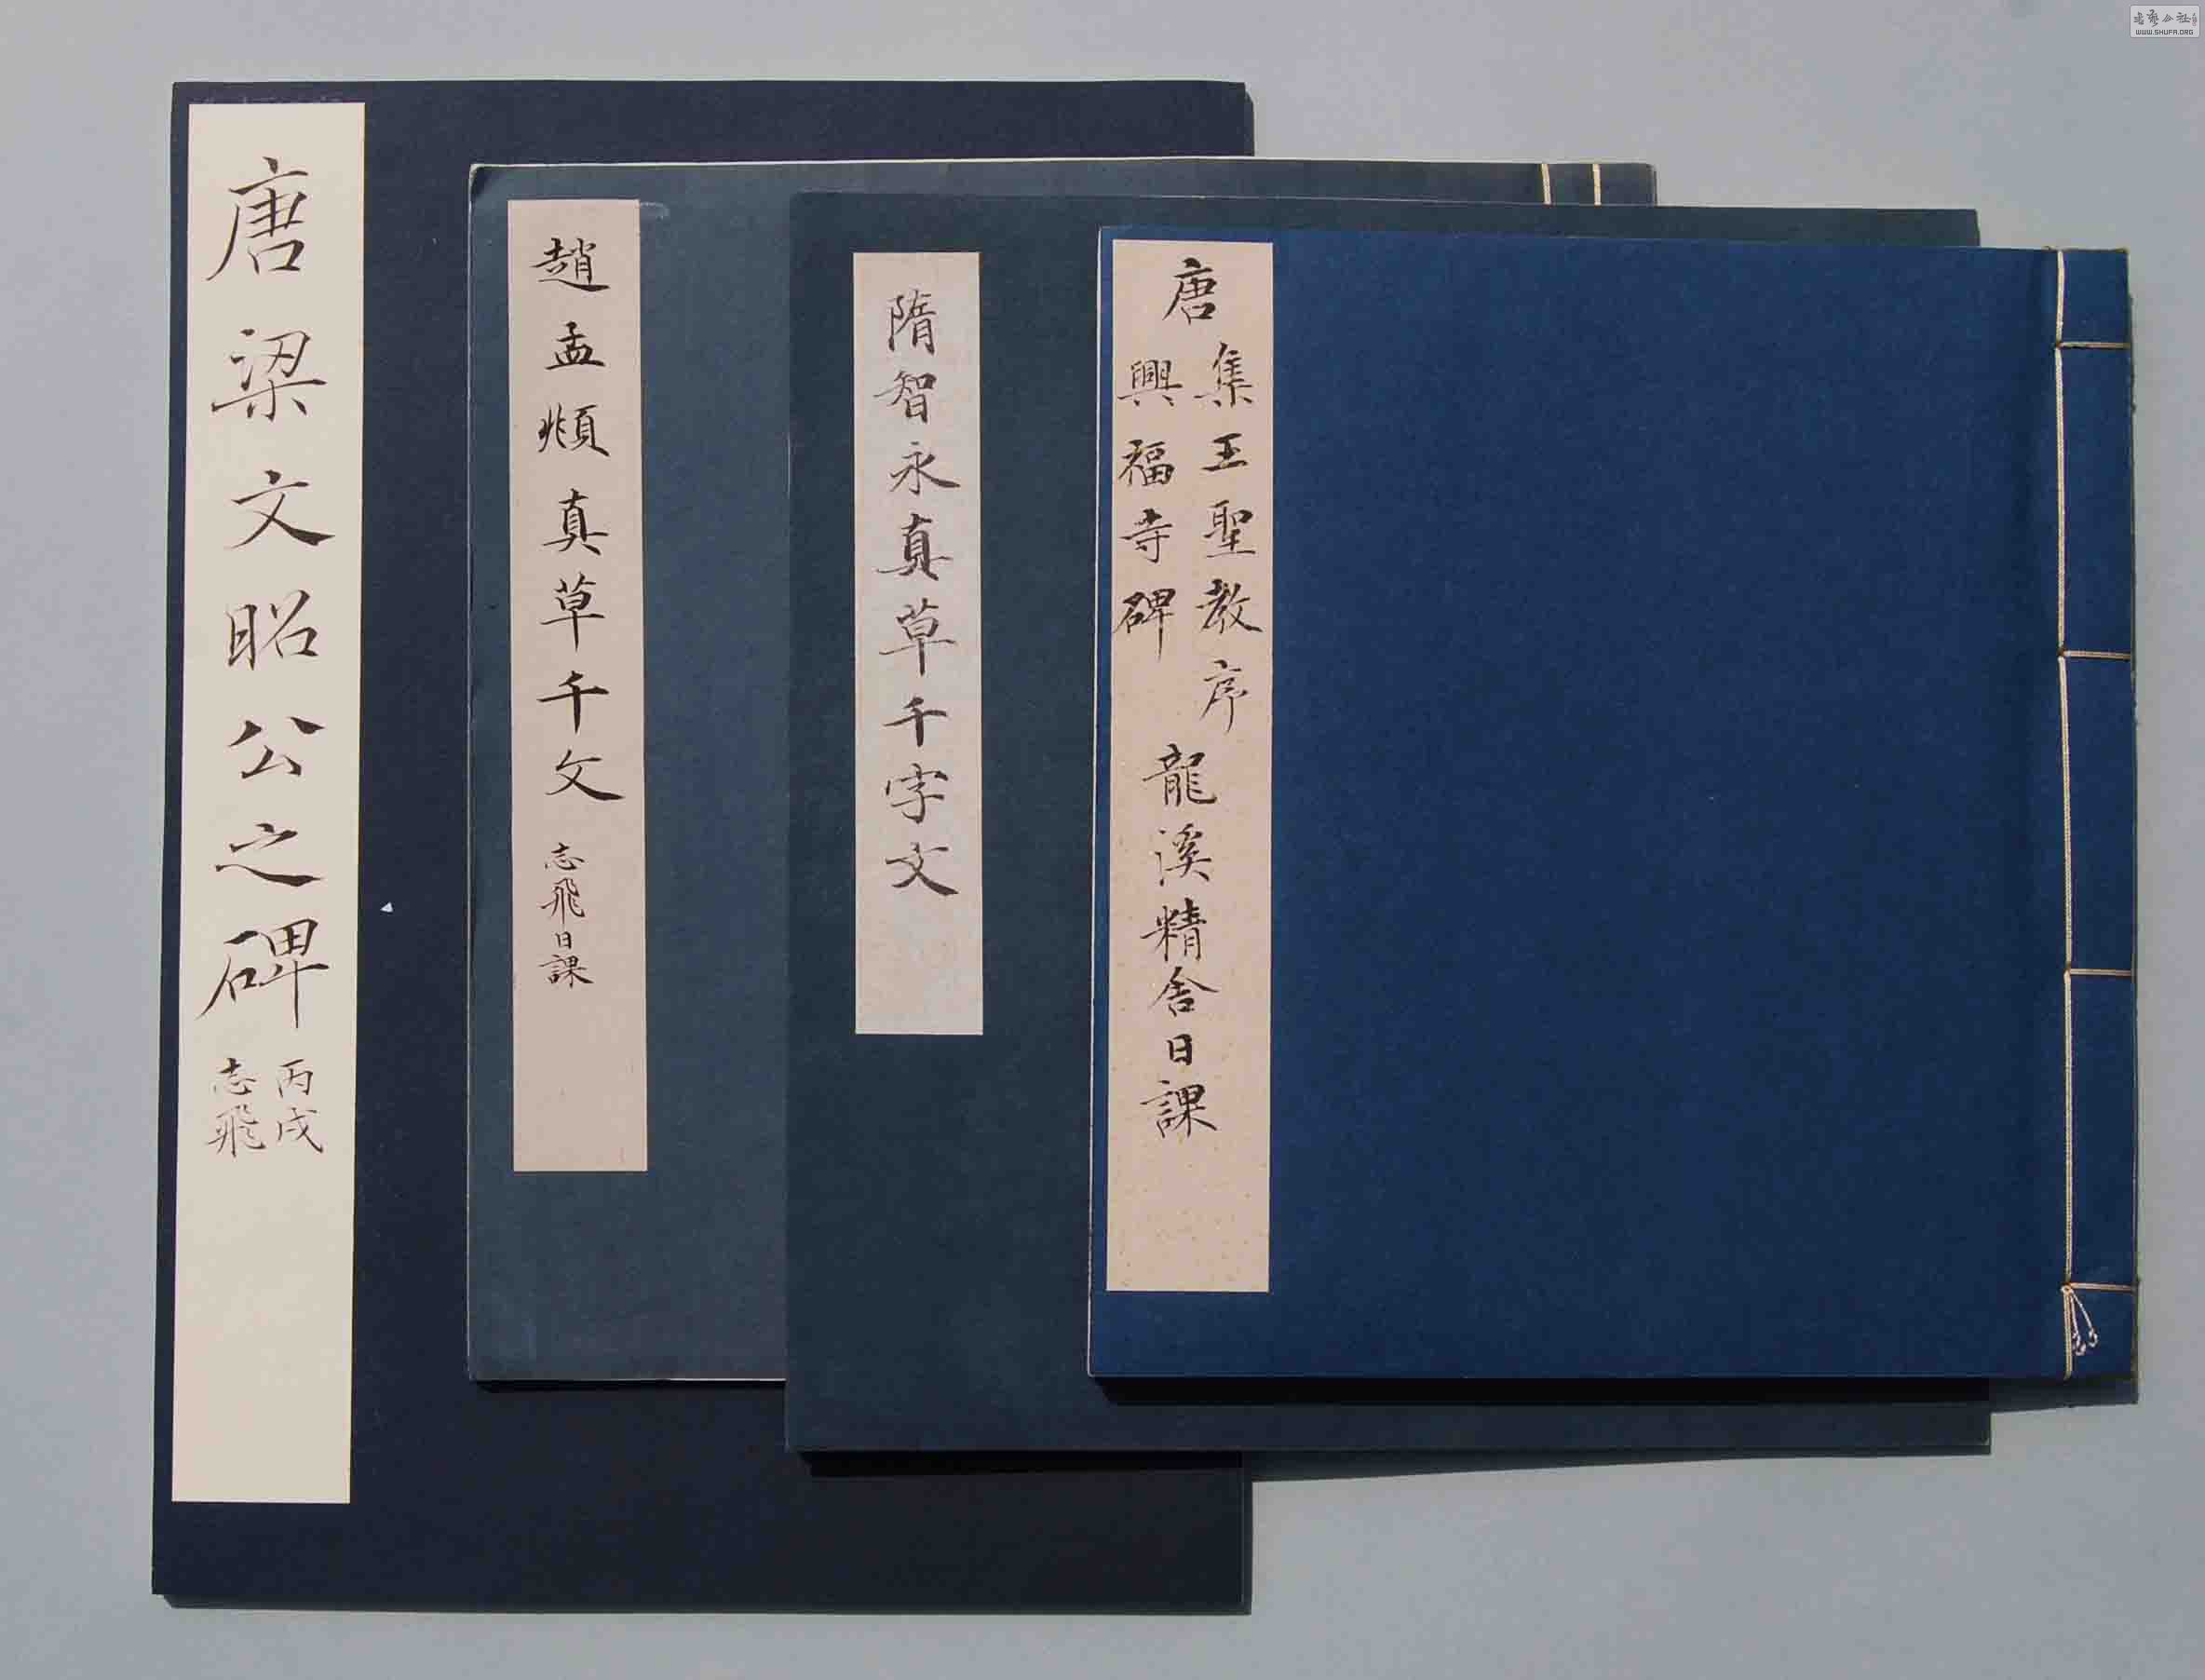 唐梁文昭公之碑
丙戌
志飛
趙孟頫真草千文
志飛日課
隋智永真草千字文
唐
集王聖教序
興福寺碑
龍溪精舍日課
書藝公社
WWW.SHUFA.ORG